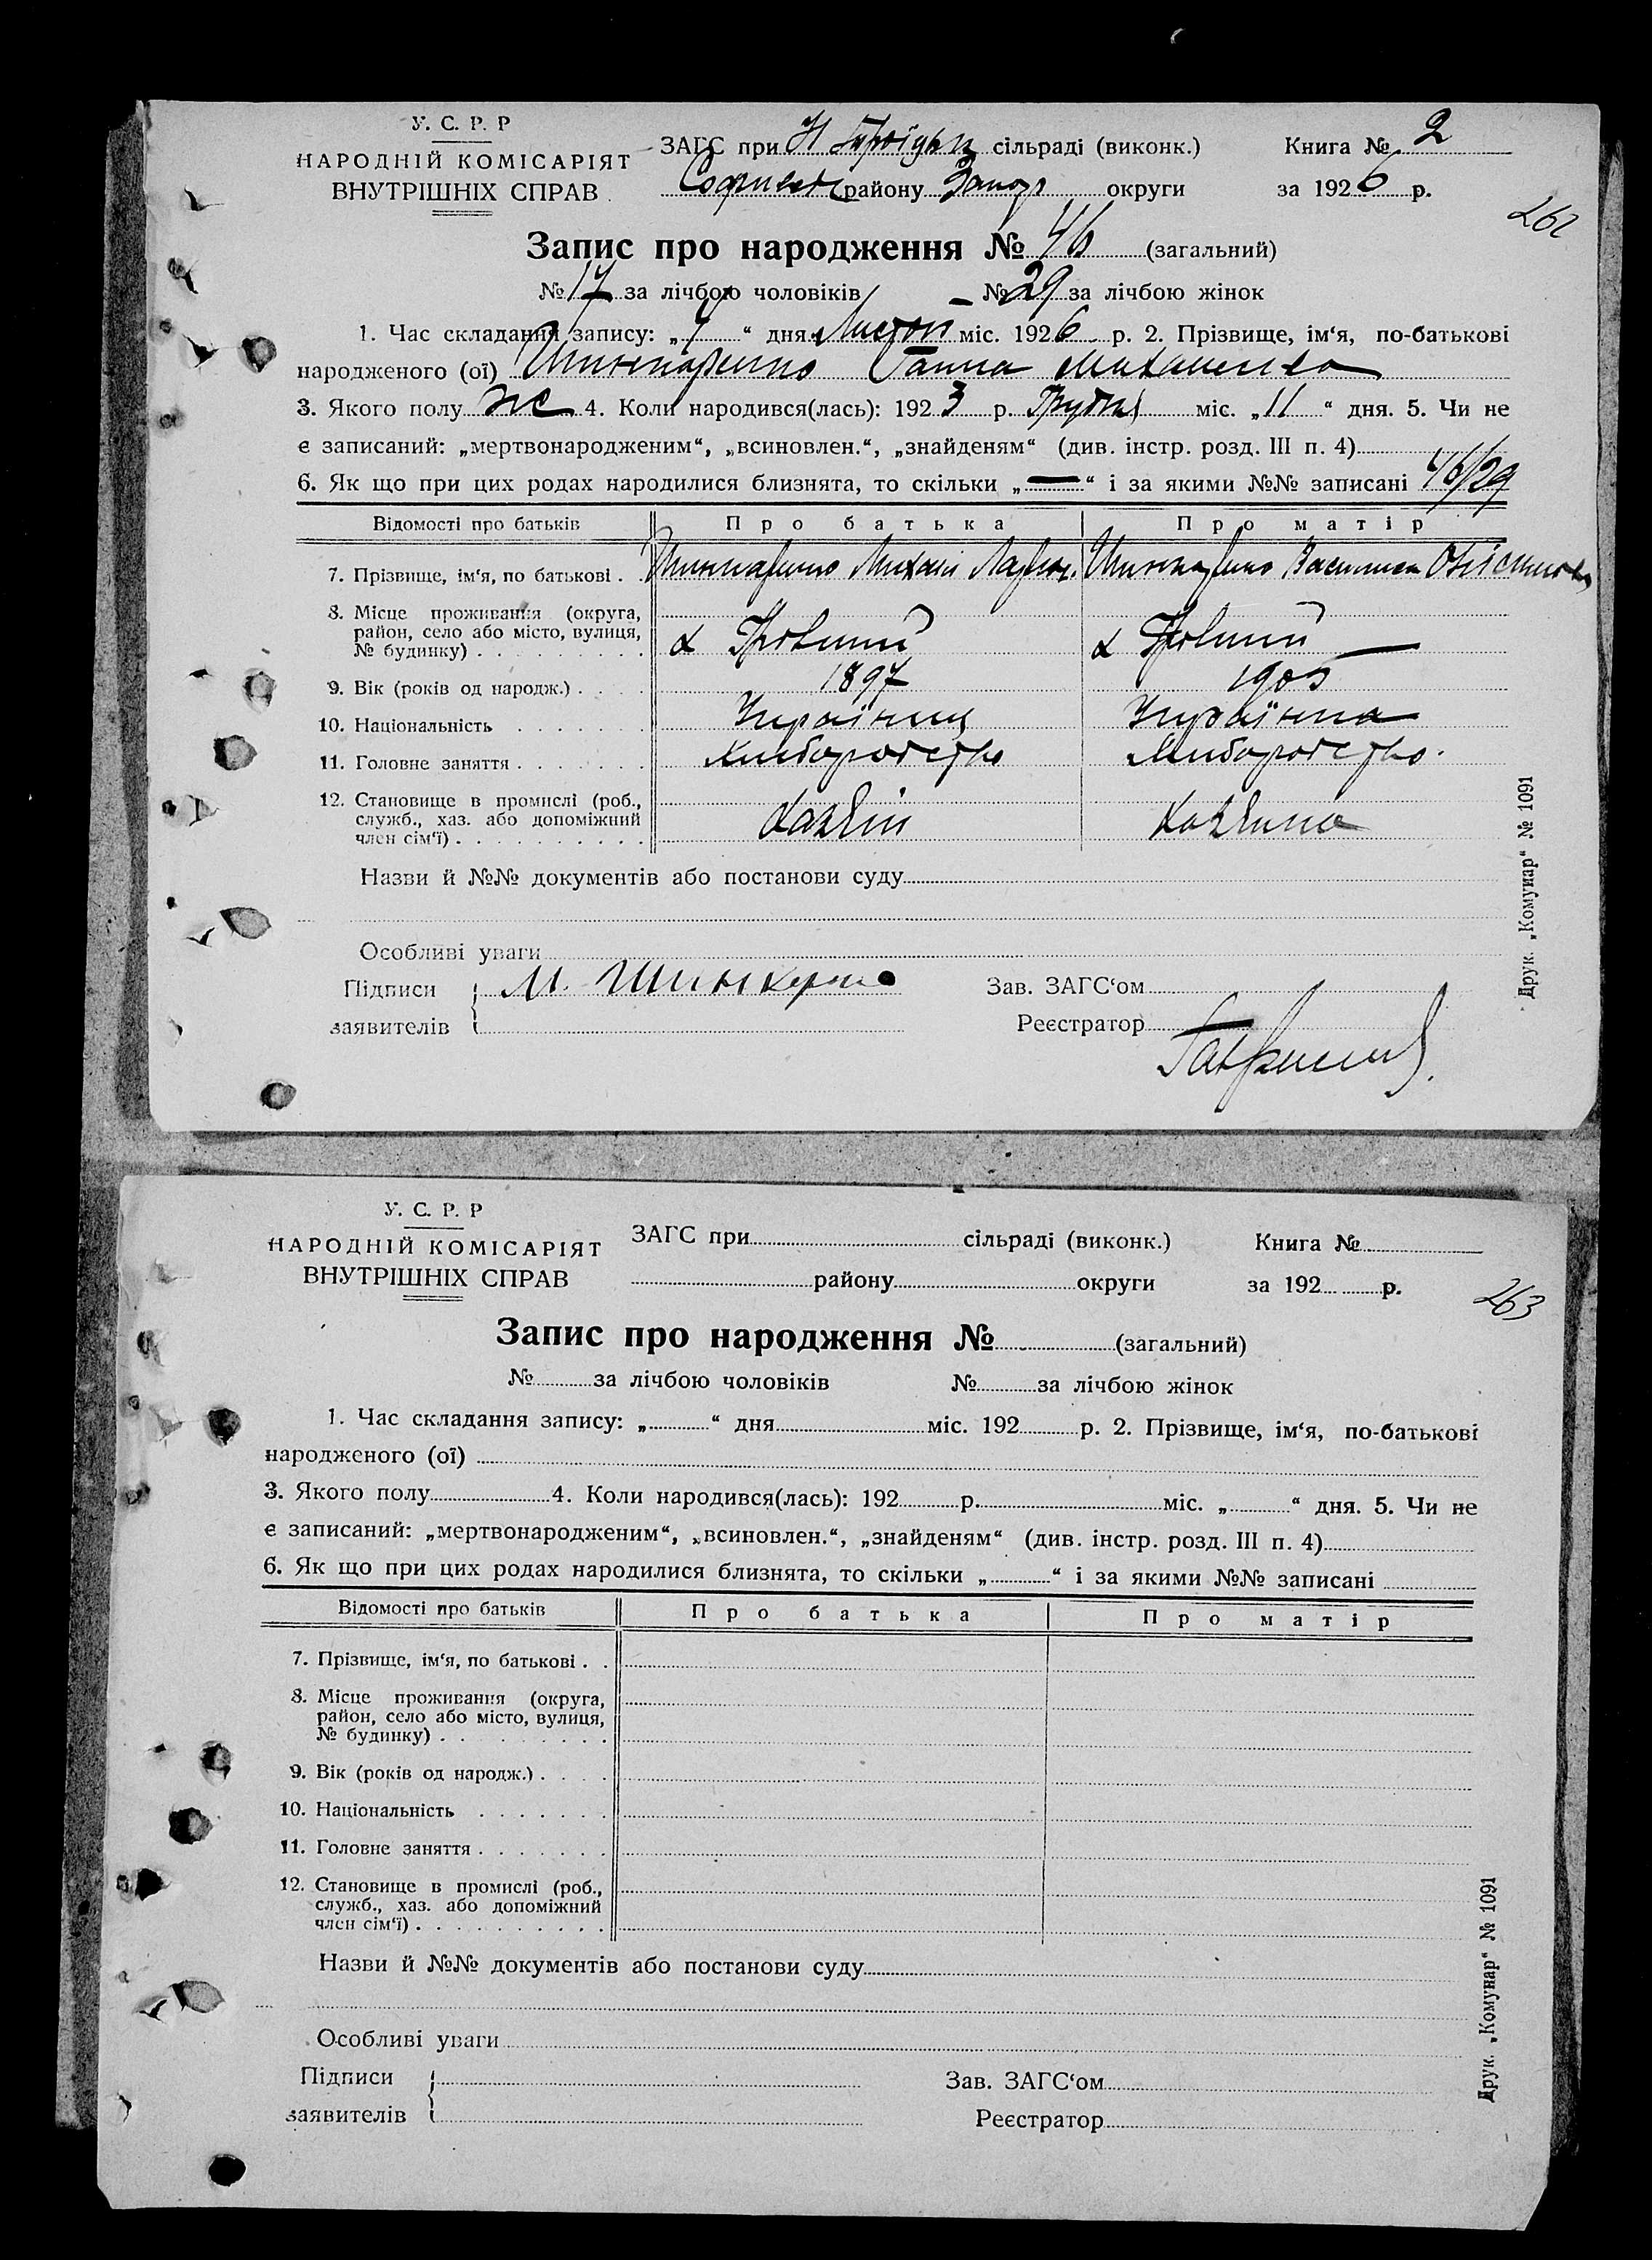 У. С. Р. Р
НАРОДНІЙ КОМІСАРІЯТ
ВНУТРІШНІХ СПРАВ
ЗАГС при Н сільраді (виконк.) Книга № 2
району Запор округи за 1926 р.
262
Запис про народження № 46 (загальний)
№ 17 за лічбою чоловіків № 29 за лічбою жінок
1. Час складання запису: „7“ дня Листоп міс. 1926 р. 2. Прізвище, ім‘я, по-батькові
народженого (ої) Шинкаренко Ганна Михайлівна
3. Якого полу жс 4. Коли народився(лась): 1923 р. Грудня міс. „11“ дня. 5. Чи не
є записаний: „мертвонародженим“, „всиновлен.“, „знайденям“ (див. інстр. розд. III п. 4)
6. Як що при цих родах народилися близнята, то скільки „—“ і за якими №№ записані 46/29
Відомості про батьків Про батька Про матір
7. Прізвище, ім‘я, по батькові . . Шинкаренко Михайло Шинкаренко Василиса
8. Місце проживання (округа,
район, село або місто, вулиця,
№ будинку)
9. Вік (років од народж.) 1897 1905
10. Національність Українець Українка
11. Головне заняття Хліборобство Хліборобство.
12. Становище в промислі (роб.,
служб., хаз. або допоміжний
член сім‘ї) Хазяїн Хазяйка
Назви й №№ документів або постанови суду
Особливі уваги
Підписи М. Шинкаренко Зав. ЗАГС‘ом
заявителів Реєстратор
Друк. „Комунар“ № 1091
У. С. Р. Р
НАРОДНІЙ КОМІСАРІЯТ
ВНУТРІШНІХ СПРАВ
ЗАГС при сільраді (виконк.) Книга №
району округи за 192 р.
263
Запис про народження № (загальний)
№ за лічбою чоловіків № за лічбою жінок
1. Час складання запису: „ “ дня міс. 192 р. 2. Прізвище, ім‘я, по-батькові
народженого (ої)
3. Якого полу 4. Коли народився(лась): 192 р. міс. „ “ дня. 5. Чи не
є записаний: „мертвонародженим“, „всиновлен.“, „знайденям“ (див. інстр. розд. III п. 4)
6. Як що при цих родах народилися близнята, то скільки „ “ і за якими №№ записані
Відомості про батьків Про батька Про матір
7. Прізвище, ім‘я, по батькові . .
8. Місце проживання (округа,
район, село або місто, вулиця,
№ будинку)
9. Вік (років од народж.)
10. Національність
11. Головне заняття
12. Становище в промислі (роб.,
служб., хаз. або допоміжний
член сім‘ї)
Назви й №№ документів або постанови суду
Особливі уваги
Підписи Зав. ЗАГС‘ом
заявителів Реєстратор
Друк. „Комунар“ № 1091